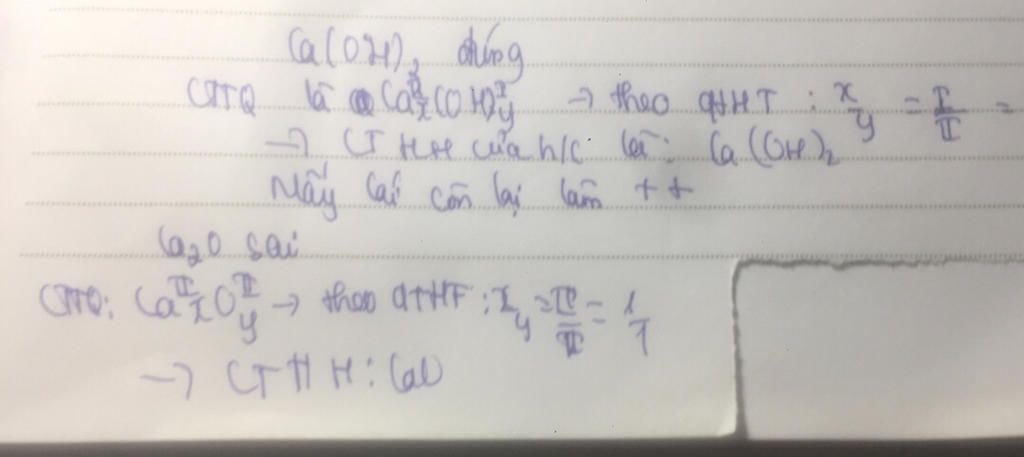 Ca(OH)₂ đúng
CTTQ là Caᴵᴵₓ(OH)ᴵy → theo QTHT : x/y = I/II =
→ CTHH của h/c là: Ca(OH)₂
Mấy cái còn lại làm tt
Ca₂O sai
CTTQ: CaᴵᴵₓOᴵᴵy → theo QTHT : x/y = II/II = 1/1
→ CTHH : CaO